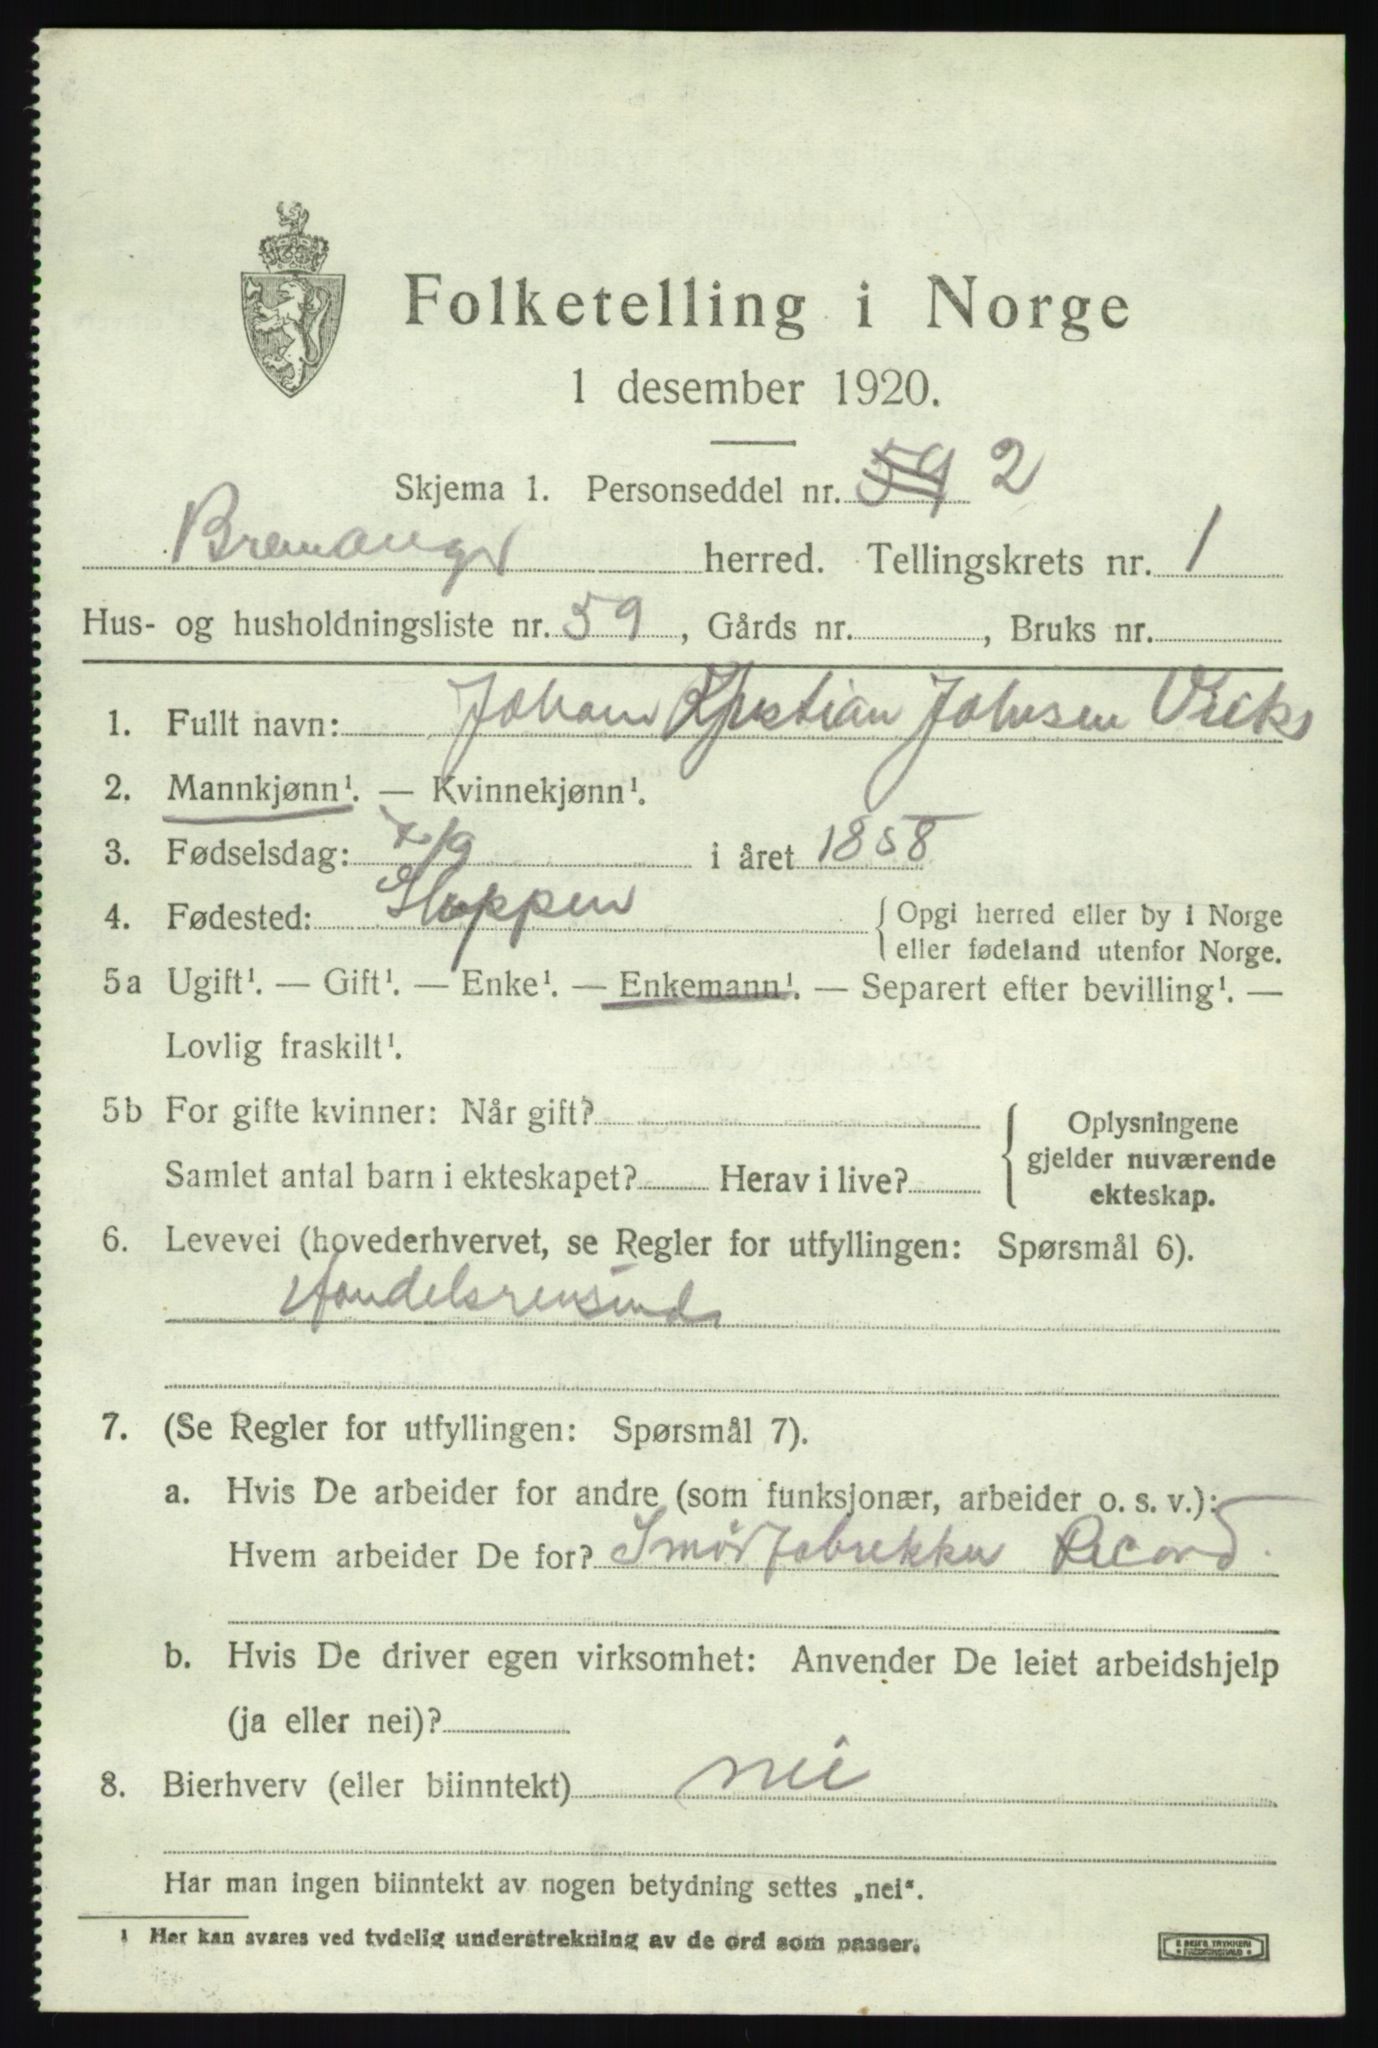 Folketelling i Norge
1 desember 1920.
Skjema 1. Personseddel nr. 59 2
Bremanger herred. Tellingskrets nr. 1
Hus- og husholdningsliste nr. 59, Gårds nr. , Bruks nr.
1. Fullt navn: Johan Kristian Johnsen
2. Mannkjønn¹. — Kvinnekjønn¹.
3. Fødselsdag: 7/9 i året 1858
4. Fødested: Gloppen { Opgi herred eller by i Norge
eller fødeland utenfor Norge.
5a Ugift¹. — Gift¹. — Enke¹. — Enkemann¹. — Separert efter bevilling¹. —
Lovlig fraskilt¹.
5b For gifte kvinner: Når gift? { Oplysningene
gjelder nuværende
Samlet antal barn i ekteskapet? Herav i live?
ekteskap.
6. Levevei (hovederhvervet, se Regler for utfyllingen: Spørsmål 6).
7. (Se Regler for utfyllingen: Spørsmål 7).
a. Hvis De arbeider for andre (som funksjonær, arbeider o. s. v.):
Hvem arbeider De for? Smørfabrikken Record.
b. Hvis De driver egen virksomhet: Anvender De leiet arbeidshjelp
(ja eller nei)?
8. Bierhverv (eller biinntekt) nei
Har man ingen biinntekt av nogen betydning settes „nei“.
1 Her kan svares ved tydelig understrekning av de ord som passer.